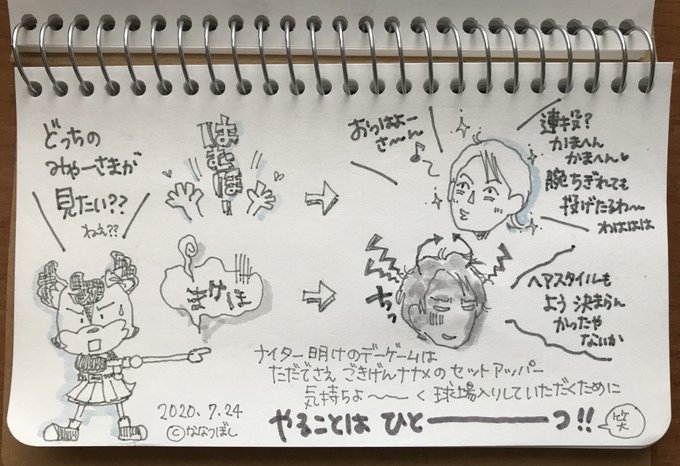 どっちの
みやーさまが
見たい??
ねぇ??
はむほー!
おっはよー
さ〜〜ん
♪
連投?
かまへん
かまへん♥
腕ちぎれても
投げたるわ〜
わははは
まけほ
ちっ
ヘアスタイルも
よう決まらん
かったや
ないか
ナイター明けのデーゲームは
ただでさえごきげんナナメのセットアッパー
気持ちよ〜〜〜く球場入りしていただくために
やることはひと━━━━つ!!
笑
2020.7.24
©ななつぼし